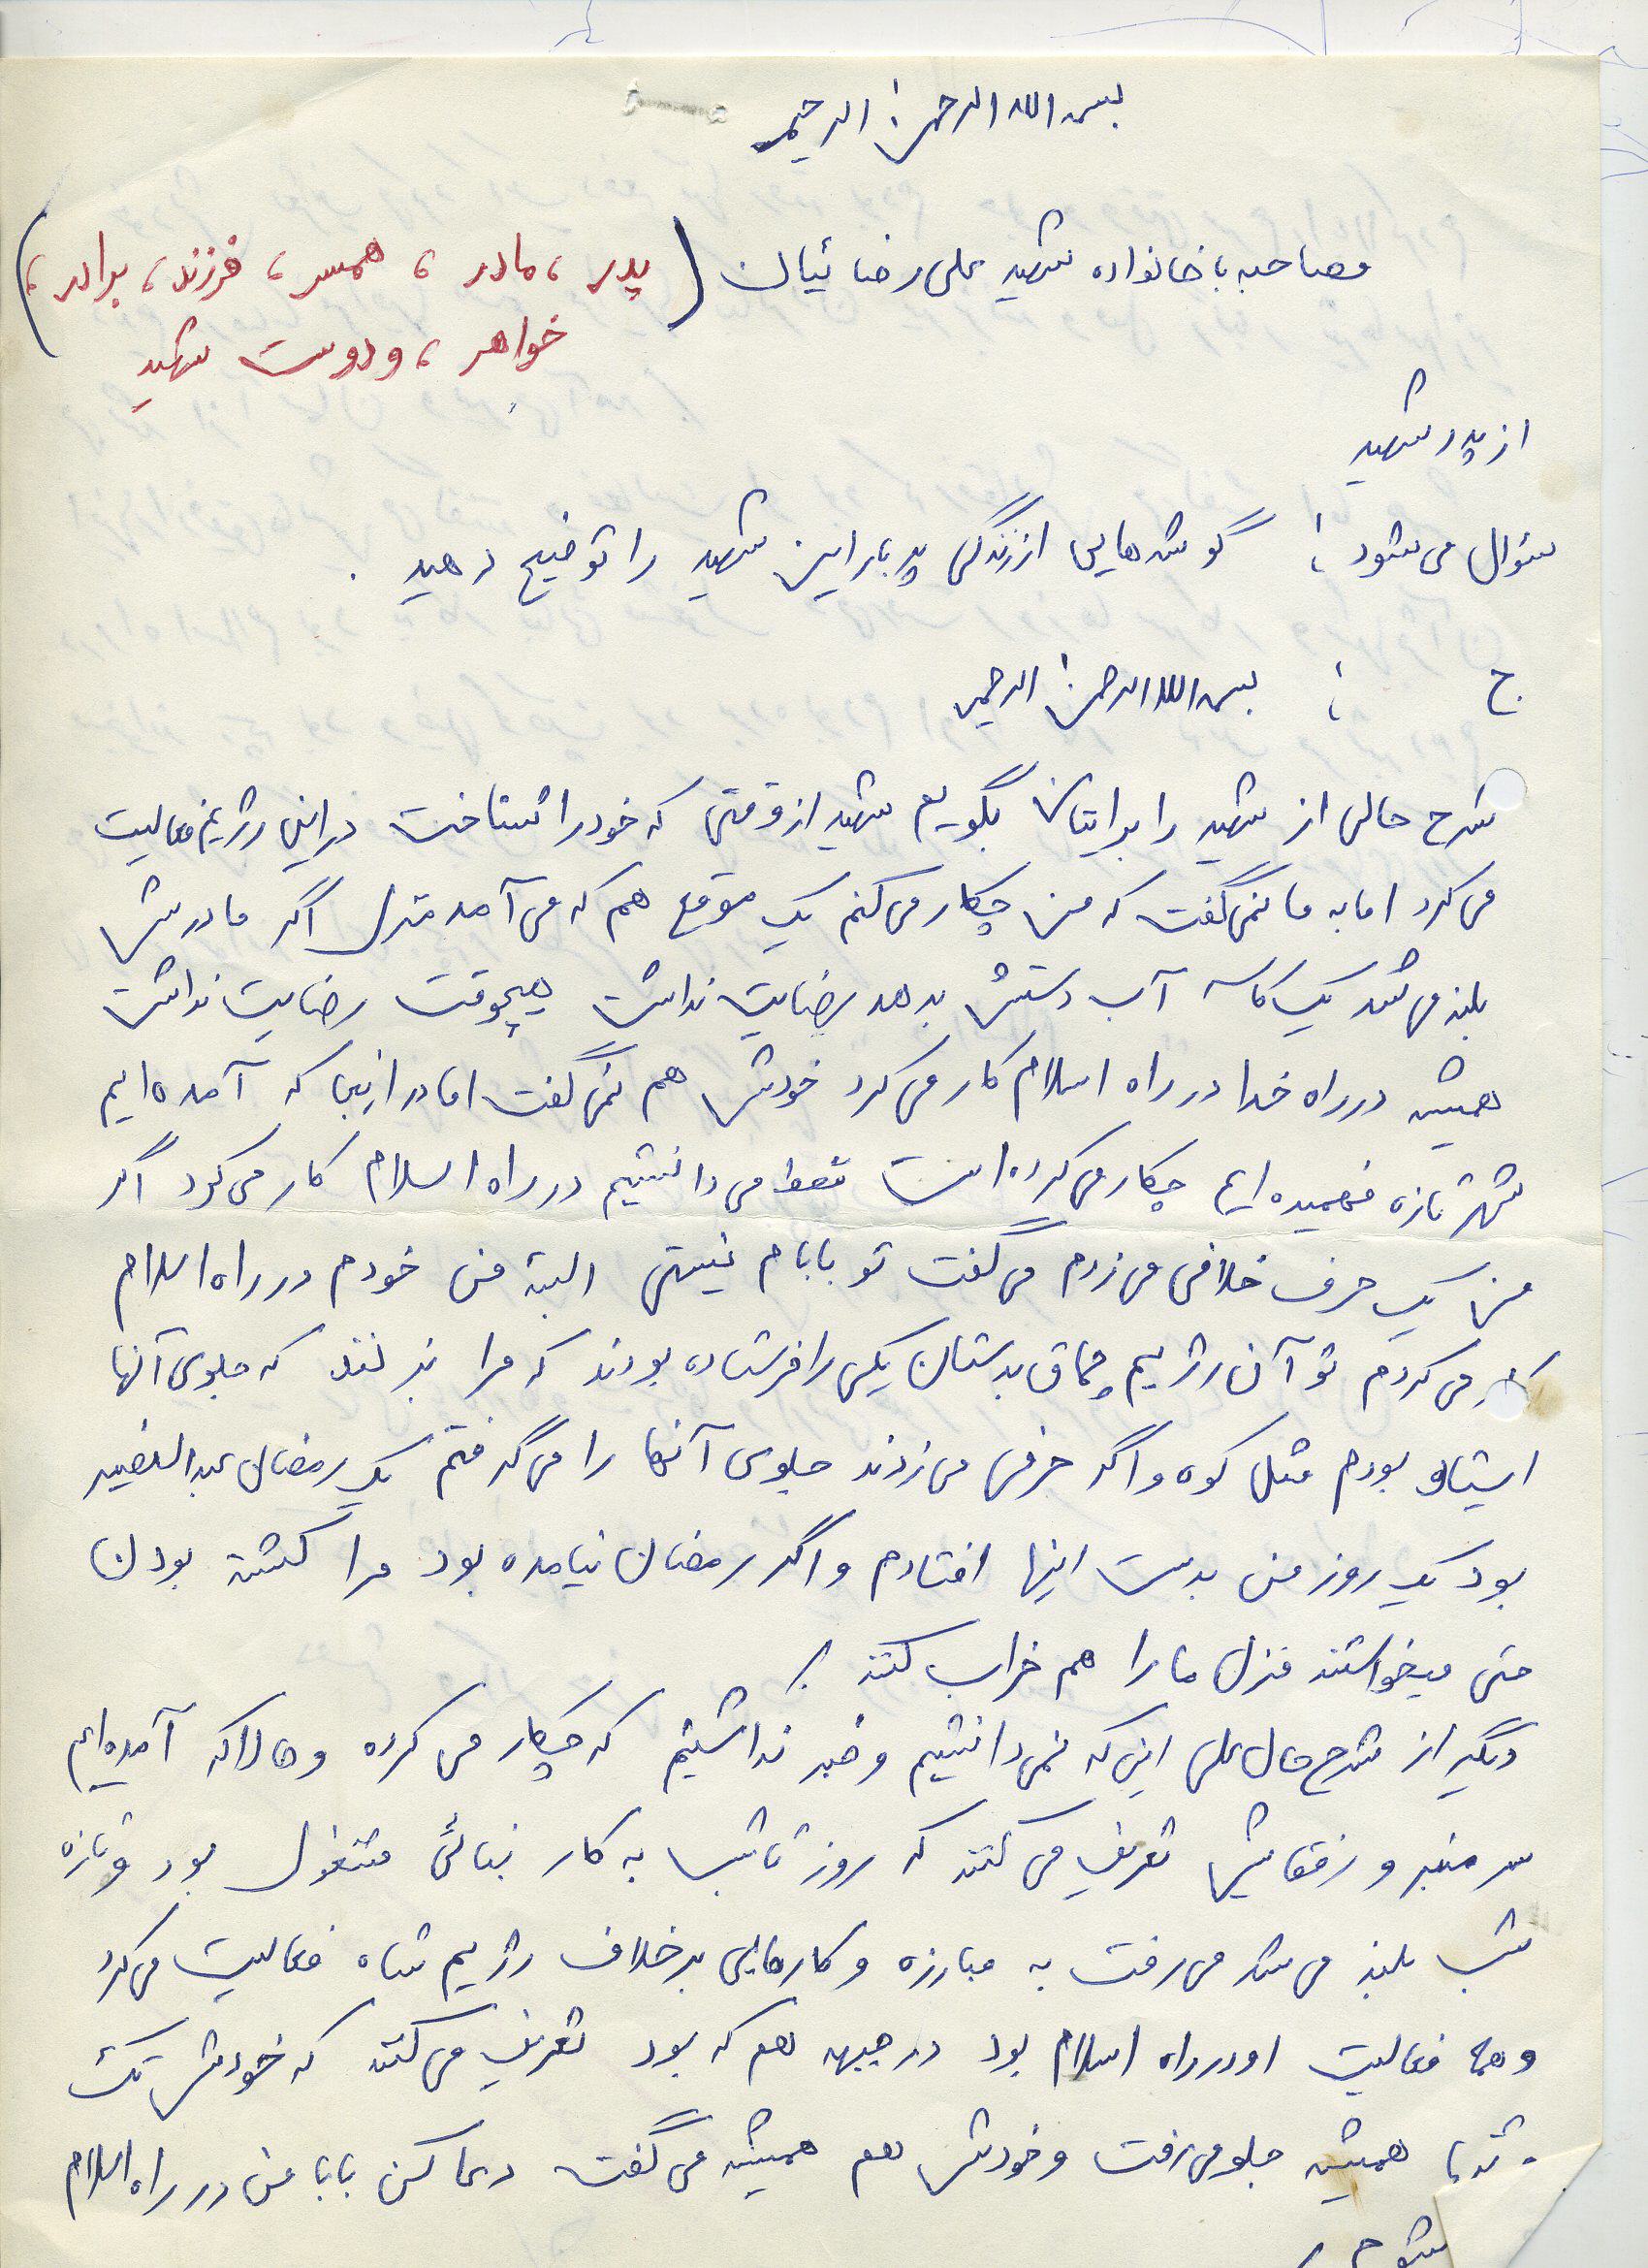 بسم الله الرحمن الرحیم
مصاحبه با خانواده شهید علی رضائیان (پدر، مادر، همسر، فرزند، برادر،
خواهر، و دوست شهید)
از پدر شهید
سئوال می شود: گوشه هایی از زندگی پر بار این شهید را توضیح دهید.
ج: بسم الله الرحمن الرحیم
شرح حالی از شهید را برایتان بگویم شهید از وقتی که خود را شناخت در این رژیم فعالیت
می کرد اما به ما نمی گفت که من چکار می کنم یک موقع هم که می آمد منزل اگر مادرش
بلند می شد یک کاسه آب دستش بدهد رضایت نداشت هیچوقت رضایت نداشت
همیشه در راه خدا در راه اسلام کار می کرد خودش هم نمی گفت اما در اینجا که آمده ایم
شهر تازه فهمیده ایم چکار می کرده است فقط می دانستیم در راه اسلام کار می کرد اگر
من یک حرف خلافی می زدم می گفت تو بابام نیستی البته من خودم در راه اسلام
کار می کردم تو آن رژیم چماق بدستان یکی را فرستاده بودند که مرا بزنند که جلوی آنها
ایستاده بودم مثل کوه و اگر حرفی می زدند جلوی آنها را می گرفتم یک رمضان عبدالنصیر
بود یک روز من بدست اینها افتادم و اگر رمضان نیامده بود مرا کشته بودن
حتی میخواستند منزل ما را هم خراب کنند.
دیگر از شرح حال علی این که نمی دانستیم و خبر نداشتیم که چکار می کرده و حالا که آمده ایم
سر منبر و رفقایش تعریف می کنند که روز تا شب به کار بنائی مشغول بود و تازه
شب بلند می شد می رفت به مبارزه و کارهایی برخلاف رژیم شاه فعالیت می کرد
و همه فعالیت او در راه اسلام بود در جبهه هم که بود تعریف می کنند که خودش تک
و تنها همیشه جلو می رفت و خودش هم همیشه می گفت دعا کن بابا من در راه اسلام
شوم.